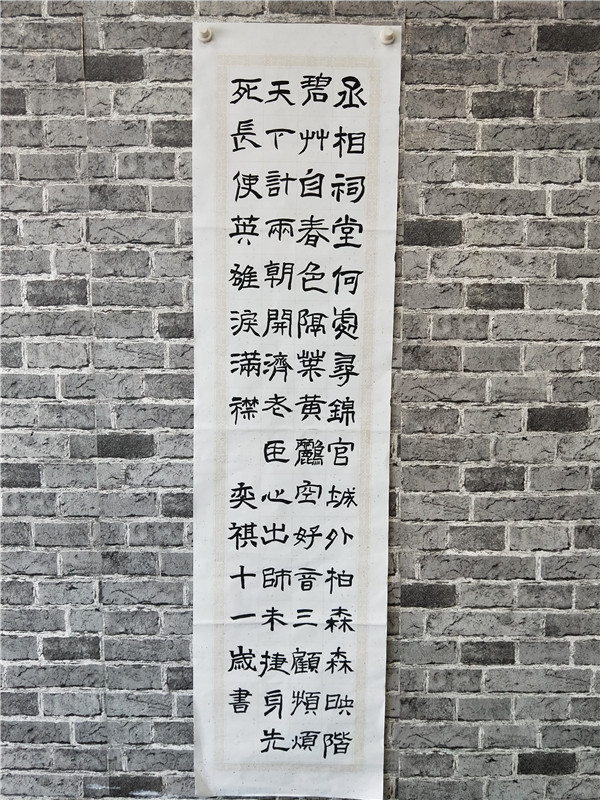 丞相祠堂何處尋錦官城外柏森森映階
碧艸自春色隔葉黃鸝空好音三顧頻煩
天下計兩朝開濟老臣心出師未捷身先
死長使英雄淚滿襟 奕祺十一歲書